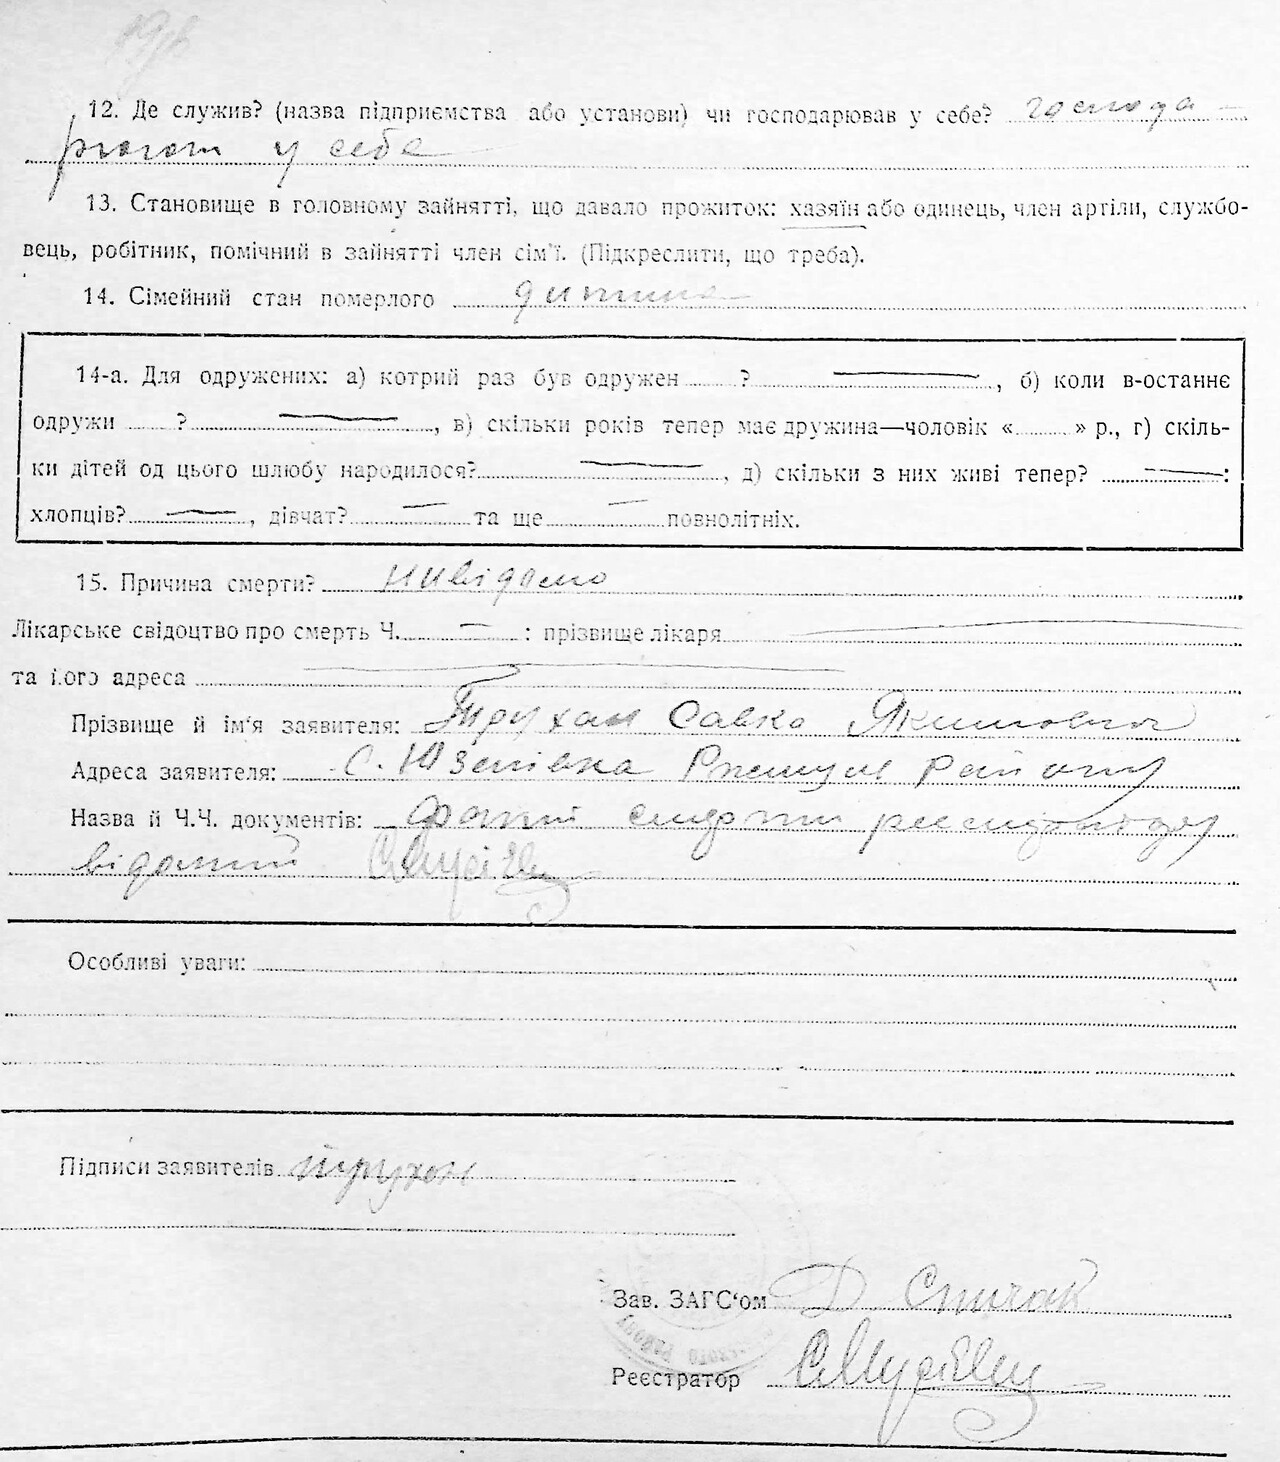 12. Де служив? (назва підприємства або установи) чи господарював у себе? господа-
рюют у себе
13. Становище в головному зайнятті, що давало прожиток: хазяїн або одинець, член артіли, службо-
вець, робітник, помічний в зайнятті член сім'ї. (Підкреслити, що треба).
14. Сімейний стан померлого дитина
14-а. Для одружених: а) котрий раз був одружен ? , б) коли в-останнє
одружи ? , в) скільки років тепер має дружина—чоловік « » р., г) скіль-
ки дітей од цього шлюбу народилося? , д) скільки з них живі тепер? :
хлопців? , дівчат? та ще повнолітніх.
15. Причина смерти? нивідомо
Лікарське свідоцтво про смерть Ч. — : прізвище лікаря
та його адреса
Прізвище й ім'я заявителя: Трухан Савка Якимович
Адреса заявителя: с. Юзепівка Ржищ району
Назва й Ч.Ч. документів:
відомий
Особливі уваги:
Підписи заявителів Трухан
Зав. ЗАГС'ом Д Спичак
Реєстратор